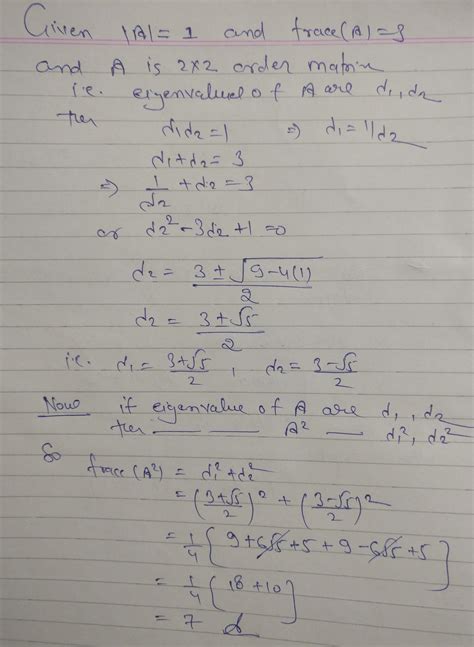 Given |A| = 1 and trace(A) = 3
and A is 2×2 order matrix
i.e. eigenvalues of A are d₁, d₂
then d₁d₂ = 1 ⇒ d₁ = 1/d₂
d₁+d₂ = 3
⇒ 1/d₂ + d₂ = 3
or d₂² - 3d₂ + 1 = 0
d₂ = (3 ± √(9-4(1)))/2
d₂ = (3 ± √5)/2
i.e. d₁ = (3+√5)/2 , d₂ = (3-√5)/2
Now if eigenvalue of A are d₁, d₂
then — — A² — d₁², d₂²
So
trace(A²) = d₁² + d₂²
= ((3+√5)/2)² + ((3-√5)/2)²
= 1/4 { 9 + 6√5 + 5 + 9 - 6√5 + 5 }
= 1/4 { 18 + 10 }
= 7